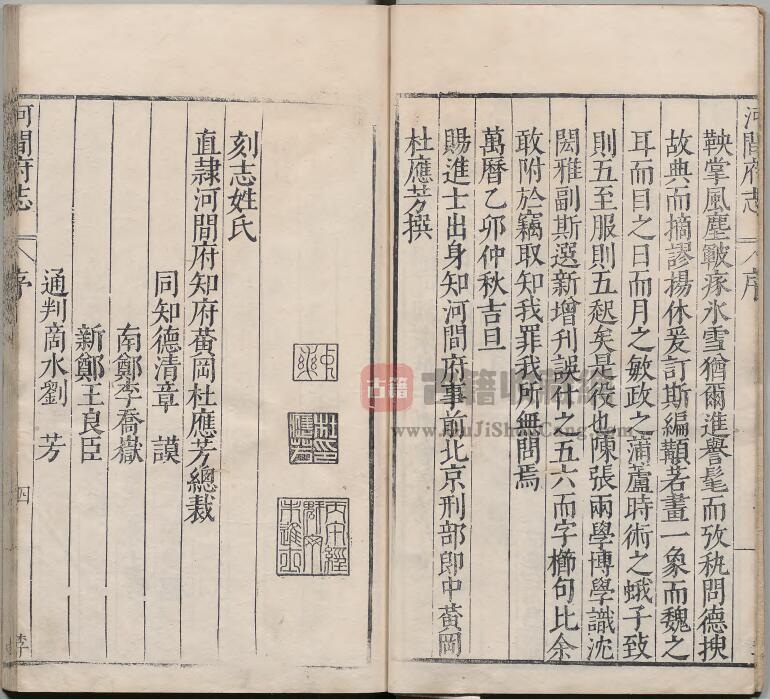 河間府志
序
鞅掌風塵皸瘃氷雪猶爾進譽髦而攷秇問德㨗
故典而摘謬揚休爰訂斯編顜若畫一象而魏之
耳而目之日而月之敏政之蒲蘆時術之蛾子致
則五至服則五起矣是役也陳張兩學博學識沈
閎雅副斯選新增刊誤什之五六而字櫛句比余
敢附於竊取知我罪我所無問焉
萬曆乙卯仲秋吉旦
賜進士出身知河間府事前北京刑部郎中黃岡
杜應芳撰
刻志姓氏
直隷河間府知府黃岡杜應芳總裁
同知德清章謨
南鄭李喬嶽
新鄭王良臣
通判商水劉芳
河間府志
序
四
古籍
www.GuJiShuCang.com